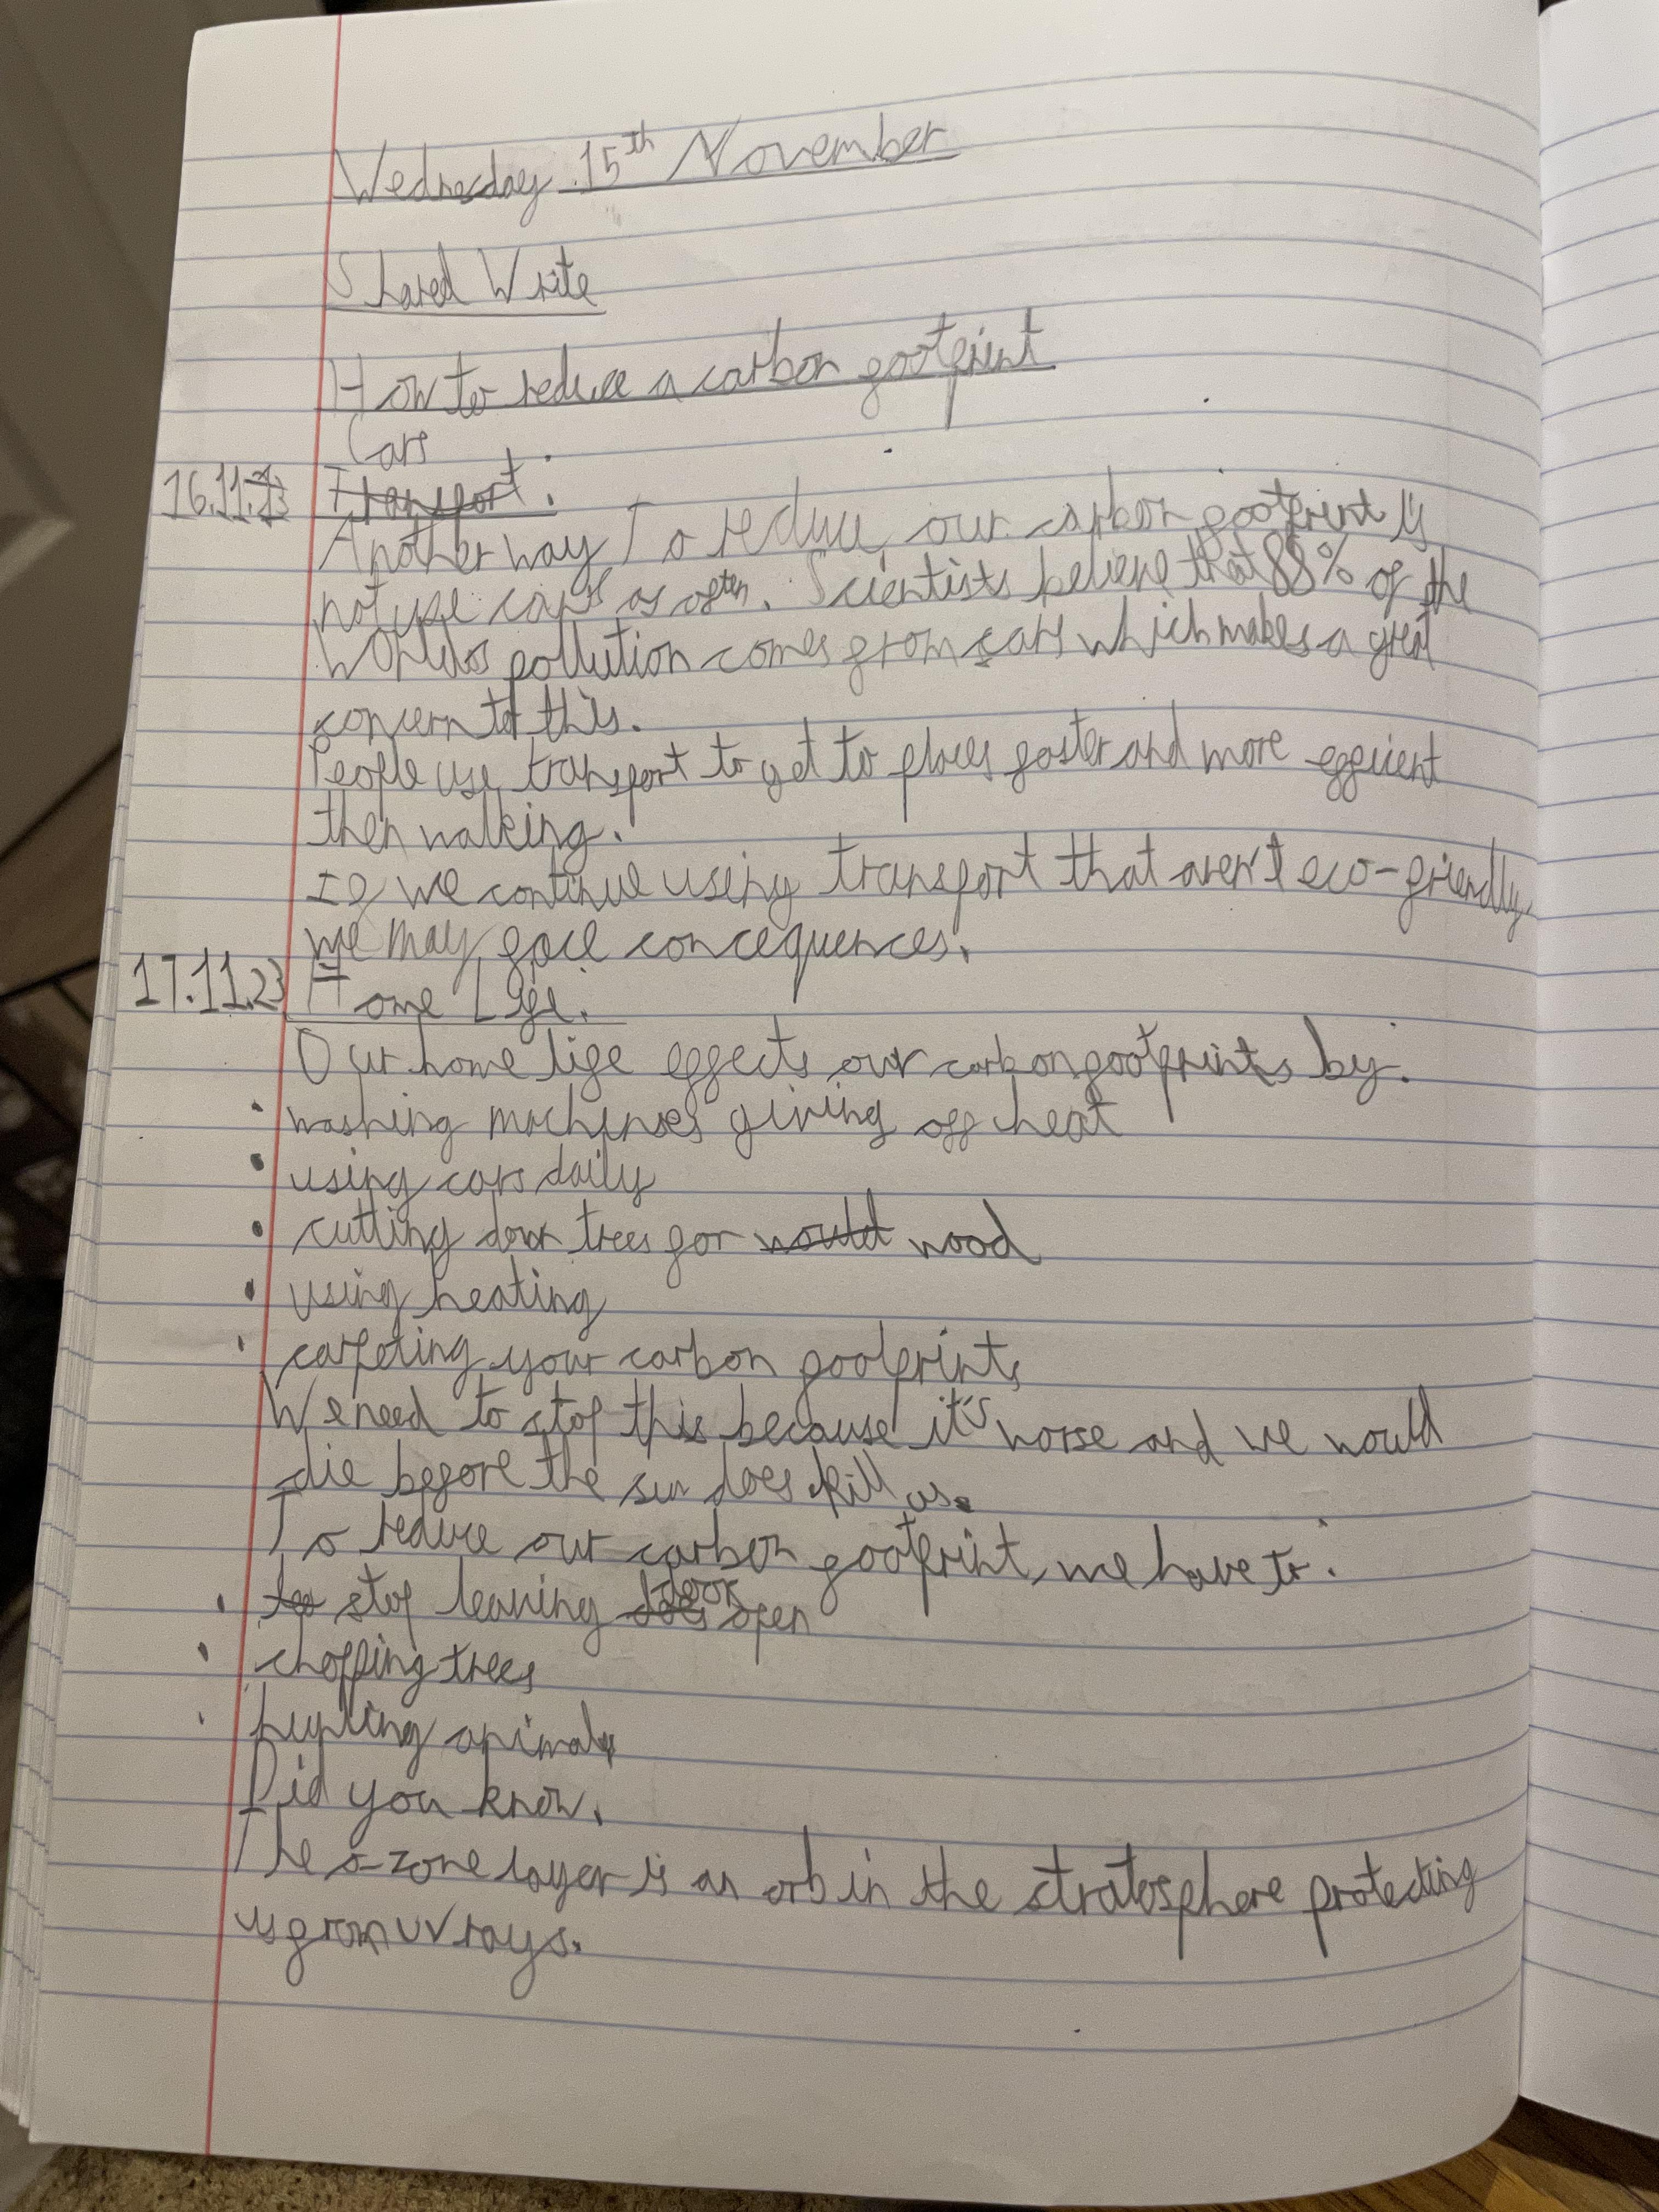 Wednesday 15th November
Shared Write
How to reduce a carbon footprint
Cars
16.11.23 Transport:
Another way To reduce our carbon footprint is
not use cars as often. Scientists believe that 88% of the
Worlds pollution comes from cars which makes a great
concern to this.
People use transport to get to places faster and more efficient
then walking.
If we continue using transport that aren't eco-friendly
we may face concequences.
17.11.23 Home Life.
Our home life effects our carbon footprints by:
• washing machines giving off heat
• using cars daily
• cutting down trees for would wood
• using heating
• carpeting your carbon footprints
We need to stop this because it's worse and we would
die before the sun does kill us.
To reduce our carbon footprint, we have to:
• to stop leaving door open
• chopping trees
• hunting animals
Did you know.
The o-zone layer is an orb in the stratosphere protecting
us from UV rays.